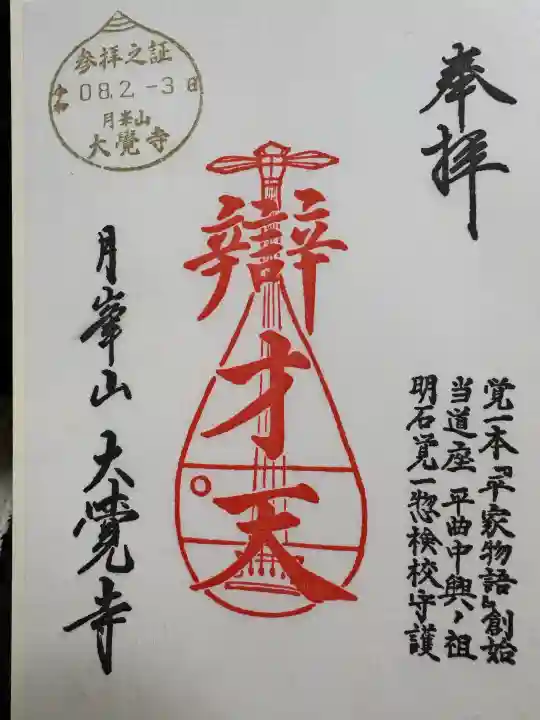 奉拝
覚一本『平家物語』創始
当道座 平曲中興ノ祖
明石覚一惣検校守護
辯才天
参拝之証
令和 08.2.-3 日
月峯山
大覺寺
月峯山 大覺寺